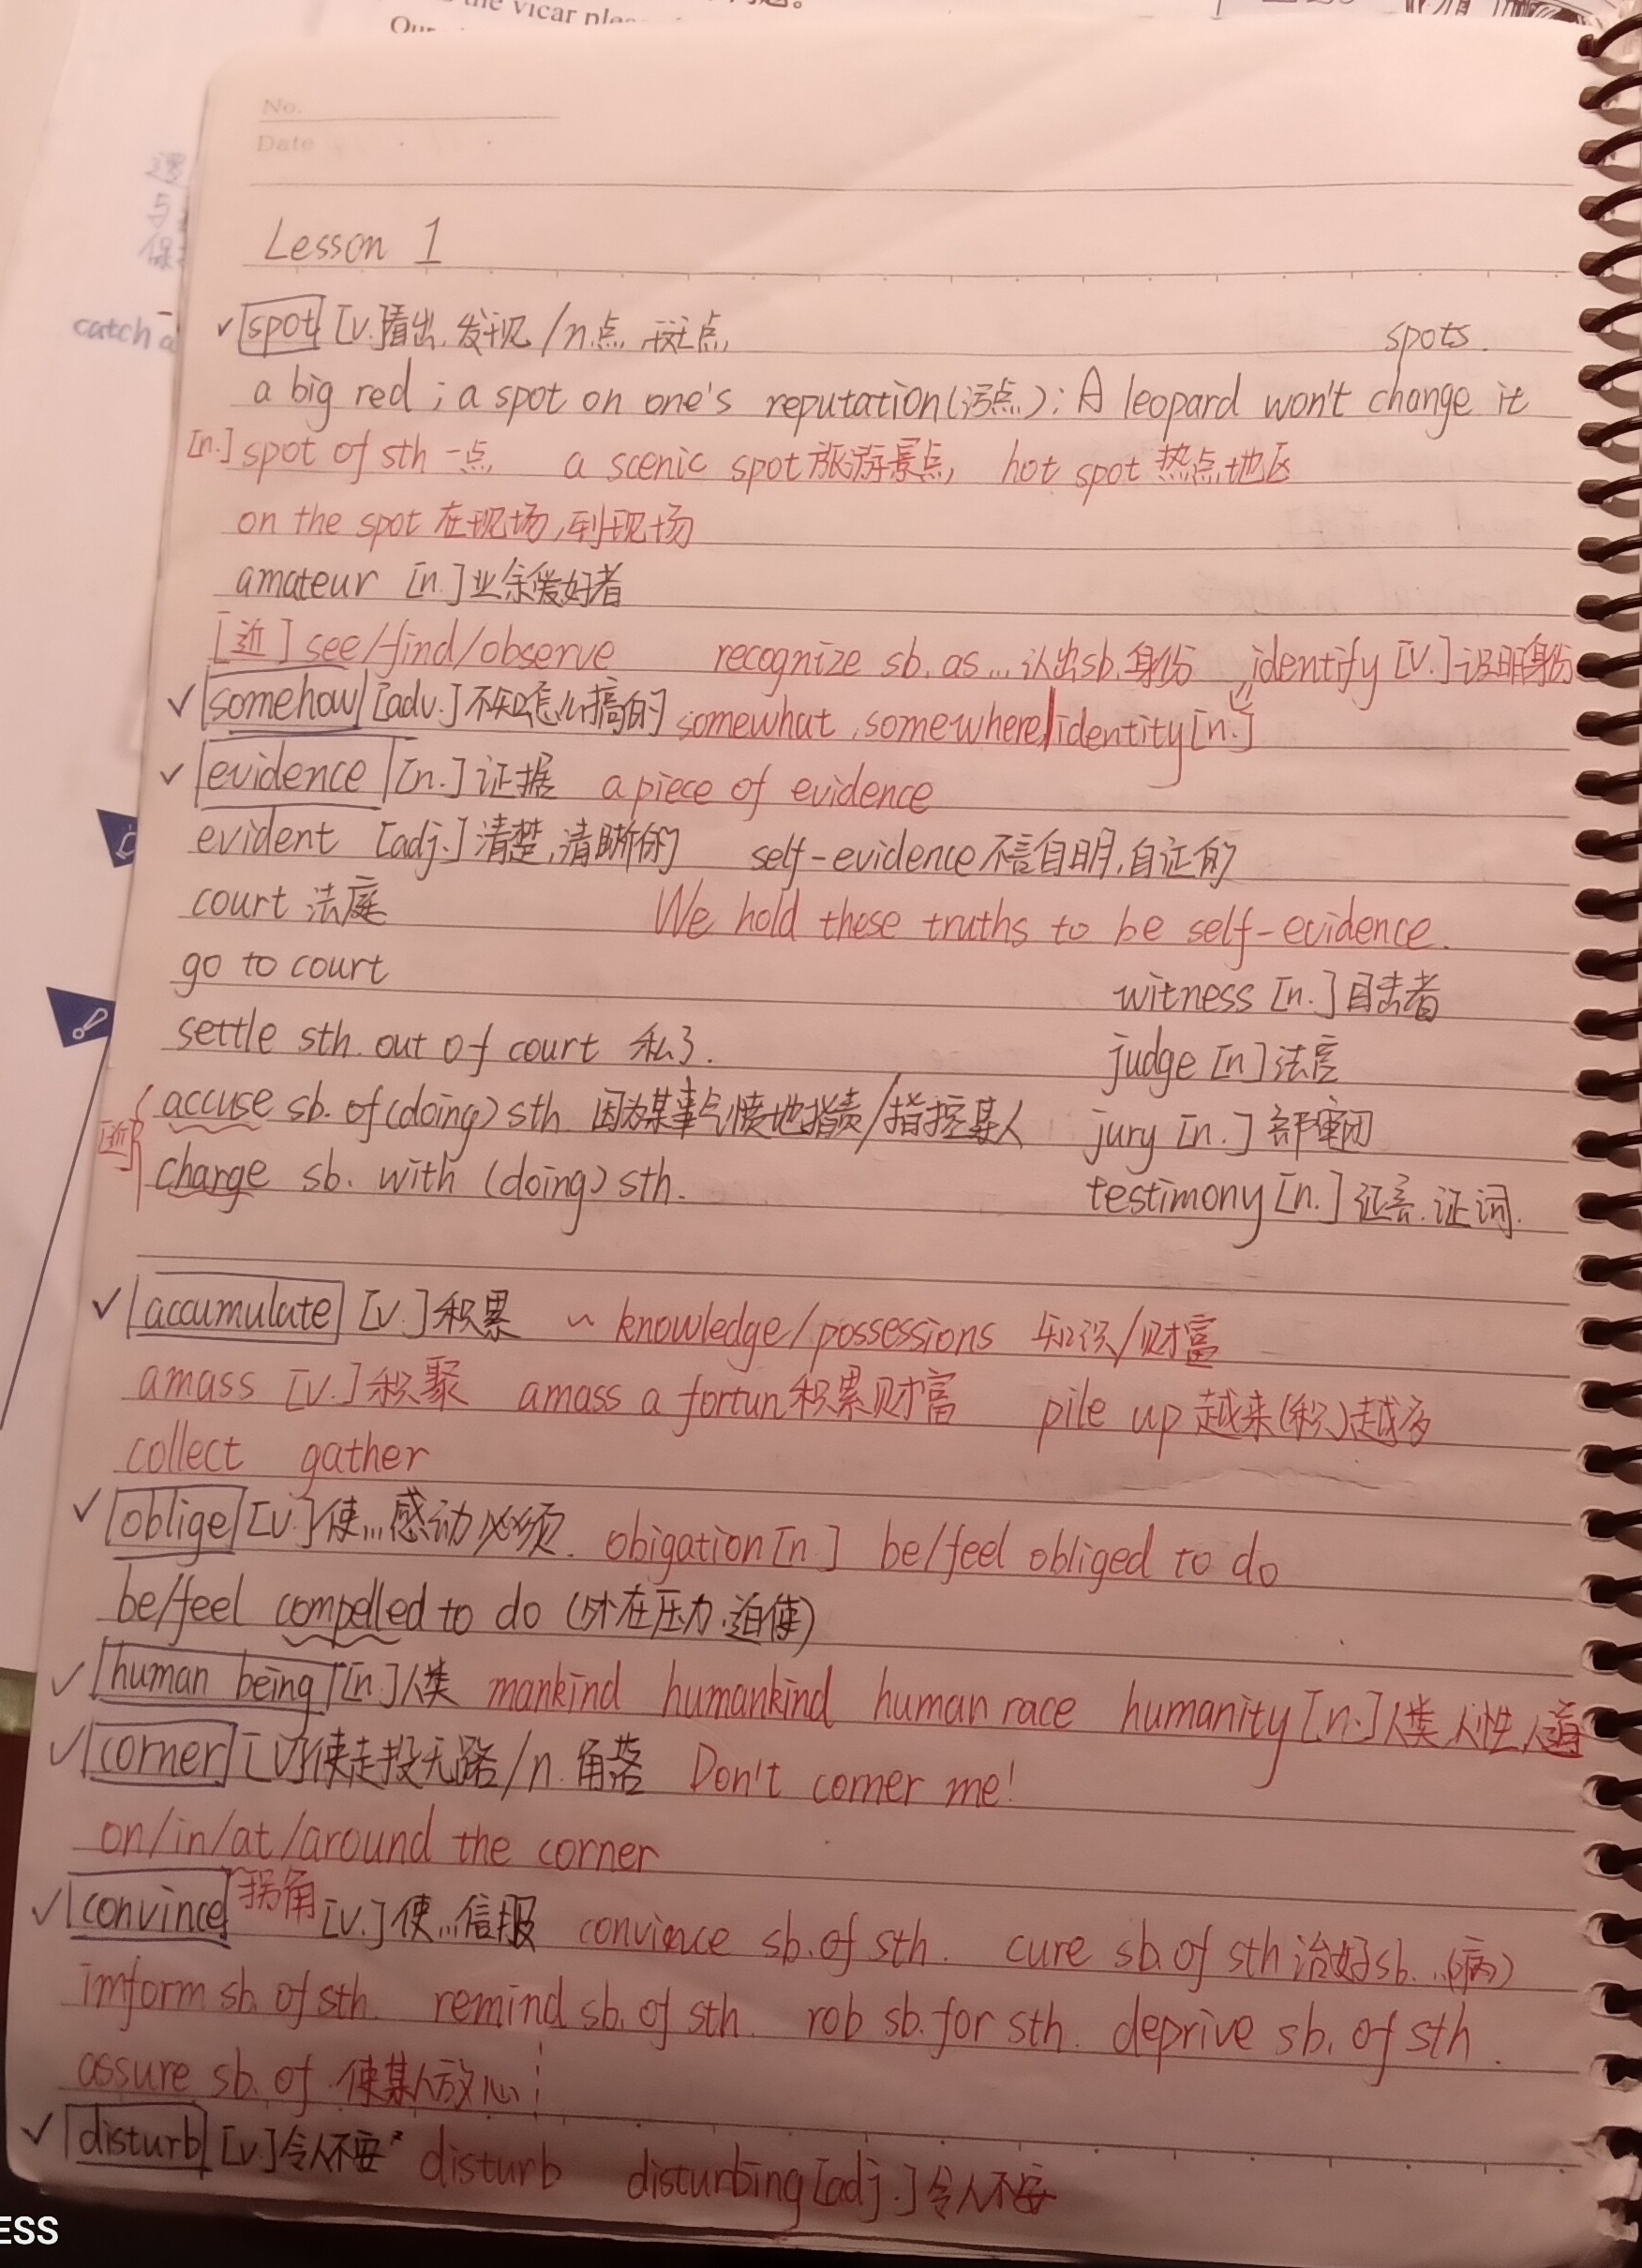 the vicar
No.
Date
Lesson 1
catch a
✓ spot [v.]看出,发现 / n.点,斑点
spots.
a big red ; a spot on one's reputation(污点) ; A leopard won't change it
[n.] spot of sth 一点, a scenic spot 旅游景点, hot spot 热点地区
on the spot 在现场,到现场
amateur [n.]业余爱好者
[近] see/find/observe recognize sb. as... 认出sb.身份 identify [v.]
✓ somehow [adv.]不知怎么搞的 somewhat, somewhere identity[n.]
✓ evidence [n.]证据 a piece of evidence
evident [adj.]清楚,清晰的 self-evidence 不言自明,自证的
court 法庭 We hold these truths to be self-evidence.
go to court witness [n.]目击者
settle sth. out of court 私了. judge [n]法官
[近] accuse sb. of (doing) sth. 因为某事气愤地指责/指控某人 jury [n.]
change sb. with (doing) sth. testimony [n.] 证言.证词.
✓ accumulate [v.]积累 ~ knowledge/possessions 知识/财富
amass [v.]积聚 amass a fortun 积累财富 pile up 越来(积)越多
collect gather
✓ oblige [v.]使...感动必须. obigation[n.] be/feel obliged to do
be/feel compelled to do (外在压力.迫使)
✓ human being [n.]人类 mankind humankind human race humanity [n.]人类 人性 人道
✓ corner [v]使走投无路/n.角落 Don't corner me!
on/in/at/around the corner
拐角
✓ convince [v.]使...信服 convience sb. of sth. cure sb. of sth 治好sb. ..(病)
imform sb. of sth. remind sb. of sth. rob sb. for sth. deprive sb. of sth.
assure sb. of 使某人放心
✓ disturb [v]令人不安 disturb disturbing [adj.]令人不安
ESS